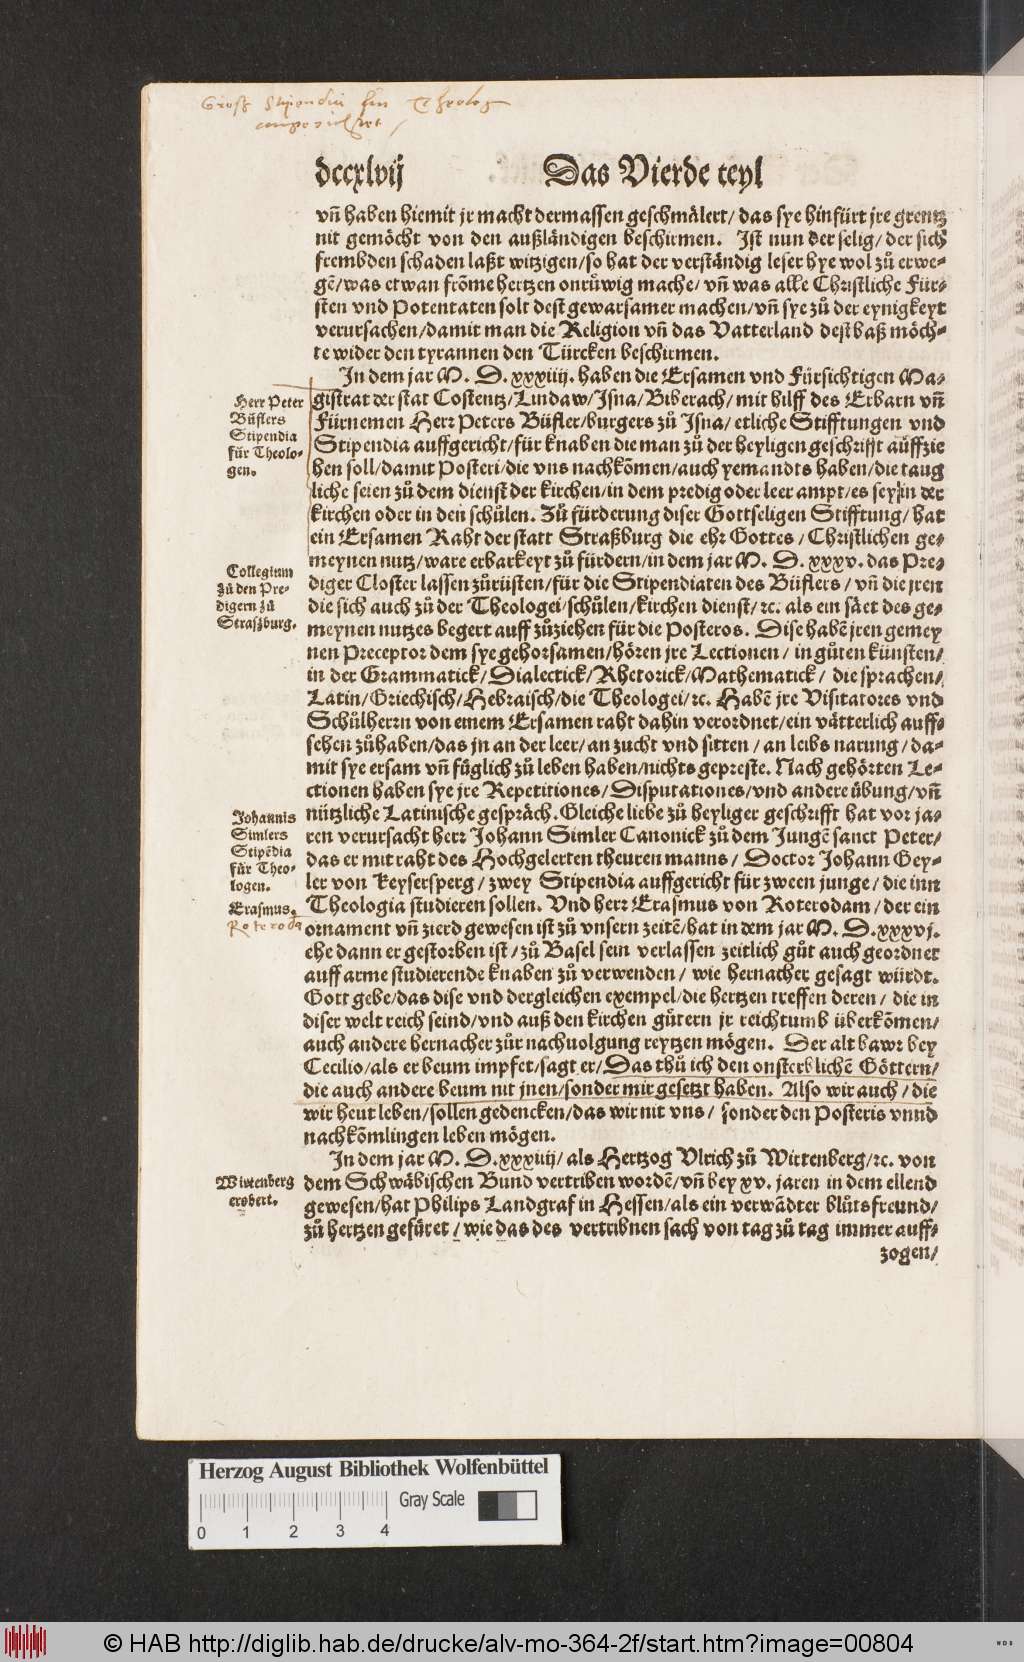 Groß Stipendia für Theolog
dccxlvij Das Vierde teyl
vñ haben hiemit jr macht dermassen geschmälert/ das sye hinfürt jre grentz
nit gemöcht von den außländigen beschirmen. Ist nun der selig/ der sich
frembden schaden laßt witzigen/ so hat der verständig leser hye wol zů erwe-
gẽ/ was etwan frõme hertzen onrůwig mache/ vñ was alle Christliche Für-
sten vnd Potentaten solt dest gewarsamer machen/ vñ sye zů der eynigkeyt
verursachen/ damit man die Religion vñ das Vatterland dest baß möch-
te wider den tyrannen den Türcken beschirmen.
In dem jar M. D. xxxiiij. haben die Ersamen vnd Fürsichtigen Ma-
gistrat der stat Costentz/ Lindaw/ Isna/ Biberach/ mit hilff des Erbarn vñ
Fürnemen Herr Peters Büfler/ burgers zů Isna/ etliche Stifftungen vnd
Stipendia auffgericht/ für knaben die man zů der heyligen geschrifft aüffzie
hen soll/ damit Posteri/ die vns nachkõmen/ auch yemandts haben/ die taug
liche seien zů dem dienst der kirchen/ in dem predig oder leer ampt/ es sey in der
kirchen oder in den schůlen. Zů fürderung diser Gottseligen Stifftung/ hat
ein Ersamen Raht der statt Straßburg die ehr Gottes/ Christlichen ge-
meynen nutz/ ware erbarkeyt zů fürdern/ in dem jar M. D. xxxv. das Pre-
diger Closter lassen zůrüsten/ für die Stipendiaten des Büflers/ vñ die jren
die sich auch zů der Theologei/ schůlen/ kirchen dienst/ ꝛc. als ein säet des ge-
meynen nutzes begert auff zůziehen für die Posteros. Dise habẽ jren gemey
nen Preceptor dem sye gehorsamen/ hören jre Lectionen/ in gůten künsten/
in der Grammatick/ Dialectick/ Rhetorick/ Mathematick/ die sprachen/
Latin/ Griechisch/ Hebraisch/ die Theologei/ ꝛc. Habẽ jre Visitatores vnd
Schůlherrn von einem Ersamen raht dahin verordnet/ ein vätterlich auff-
sehen zůhaben/ das jn an der leer/ an zucht vnd sitten/ an leibs narung/ da-
mit sye ersam vñ füglich zů leben haben/ nichts gepreste. Nach gehörten Le-
ctionen haben sye jre Repetitiones/ Disputationes/ vnd andere übung/ vñ
nützliche Latinische gespräch. Gleiche liebe zů heyliger geschrifft hat vor ja-
ren verursacht herr Johann Simler Canonick zů dem Jungẽ sanct Peter/
das er mit raht des Hochgelerten theuren manns/ Doctor Johann Gey-
ler von Keysersperg/ zwey Stipendia auffgericht für zween junge/ die inn
Theologia studieren sollen. Vnd herr Erasmus von Roterodam/ der ein
ornament vñ zierd gewesen ist zů vnsern zeitẽ/ hat in dem jar M. D. xxxvj.
ehe dann er gestorben ist/ zů Basel sein verlassen zeitlich gůt auch geordnet
auff arme studierende knaben zů verwenden/ wie hernacher gesagt würdt.
Gott gebe/ das dise vnd dergleichen exempel/ die hertzen treffen deren/ die in
diser welt reich seind/ vnd auß den kirchen gůtern jr reichtumb überkõmen/
auch andere hernacher zůr nachuolgung reytzen mögen. Der alt bawr bey
Cecilio/ als er beum impfet/ sagt er/ Das thů ich den onsterblichẽ Göttern/
die auch andere beum nit jnen/ sonder mir gesetzt haben. Also wir auch/ die
wir heut leben/ sollen gedencken/ das wir nit vns/ sonder den Posteris vnnd
nachkõmlingen leben mögen.
In dem jar M. D. xxxiiij/ als Hertzog Vlrich zů Wirtenberg/ ꝛc. von
dem Schwäbischen Bund vertriben wordẽ/ vñ bey xv. jaren in dem ellend
gewesen/ hat Philips Landgraf in Hessen/ als ein verwãdter blůtsfreund/
zů hertzen gefüret/ wie das des vertribnen sach von tag zů tag immer auff-
zogen/
Herr Peter
Büflers
Stipendia
für Theolo-
gen.
Collegium
zů den Pre-
digern zů
Straßburg.
Johannis
Simlers
Stipẽdia
für Theo-
logen.
Erasmus.
Roteroda
Wirtenberg
erobert.
Herzog August Bibliothek Wolfenbüttel
Gray Scale
0 1 2 3 4
© HAB http://diglib.hab.de/drucke/alv-mo-364-2f/start.htm?image=00804